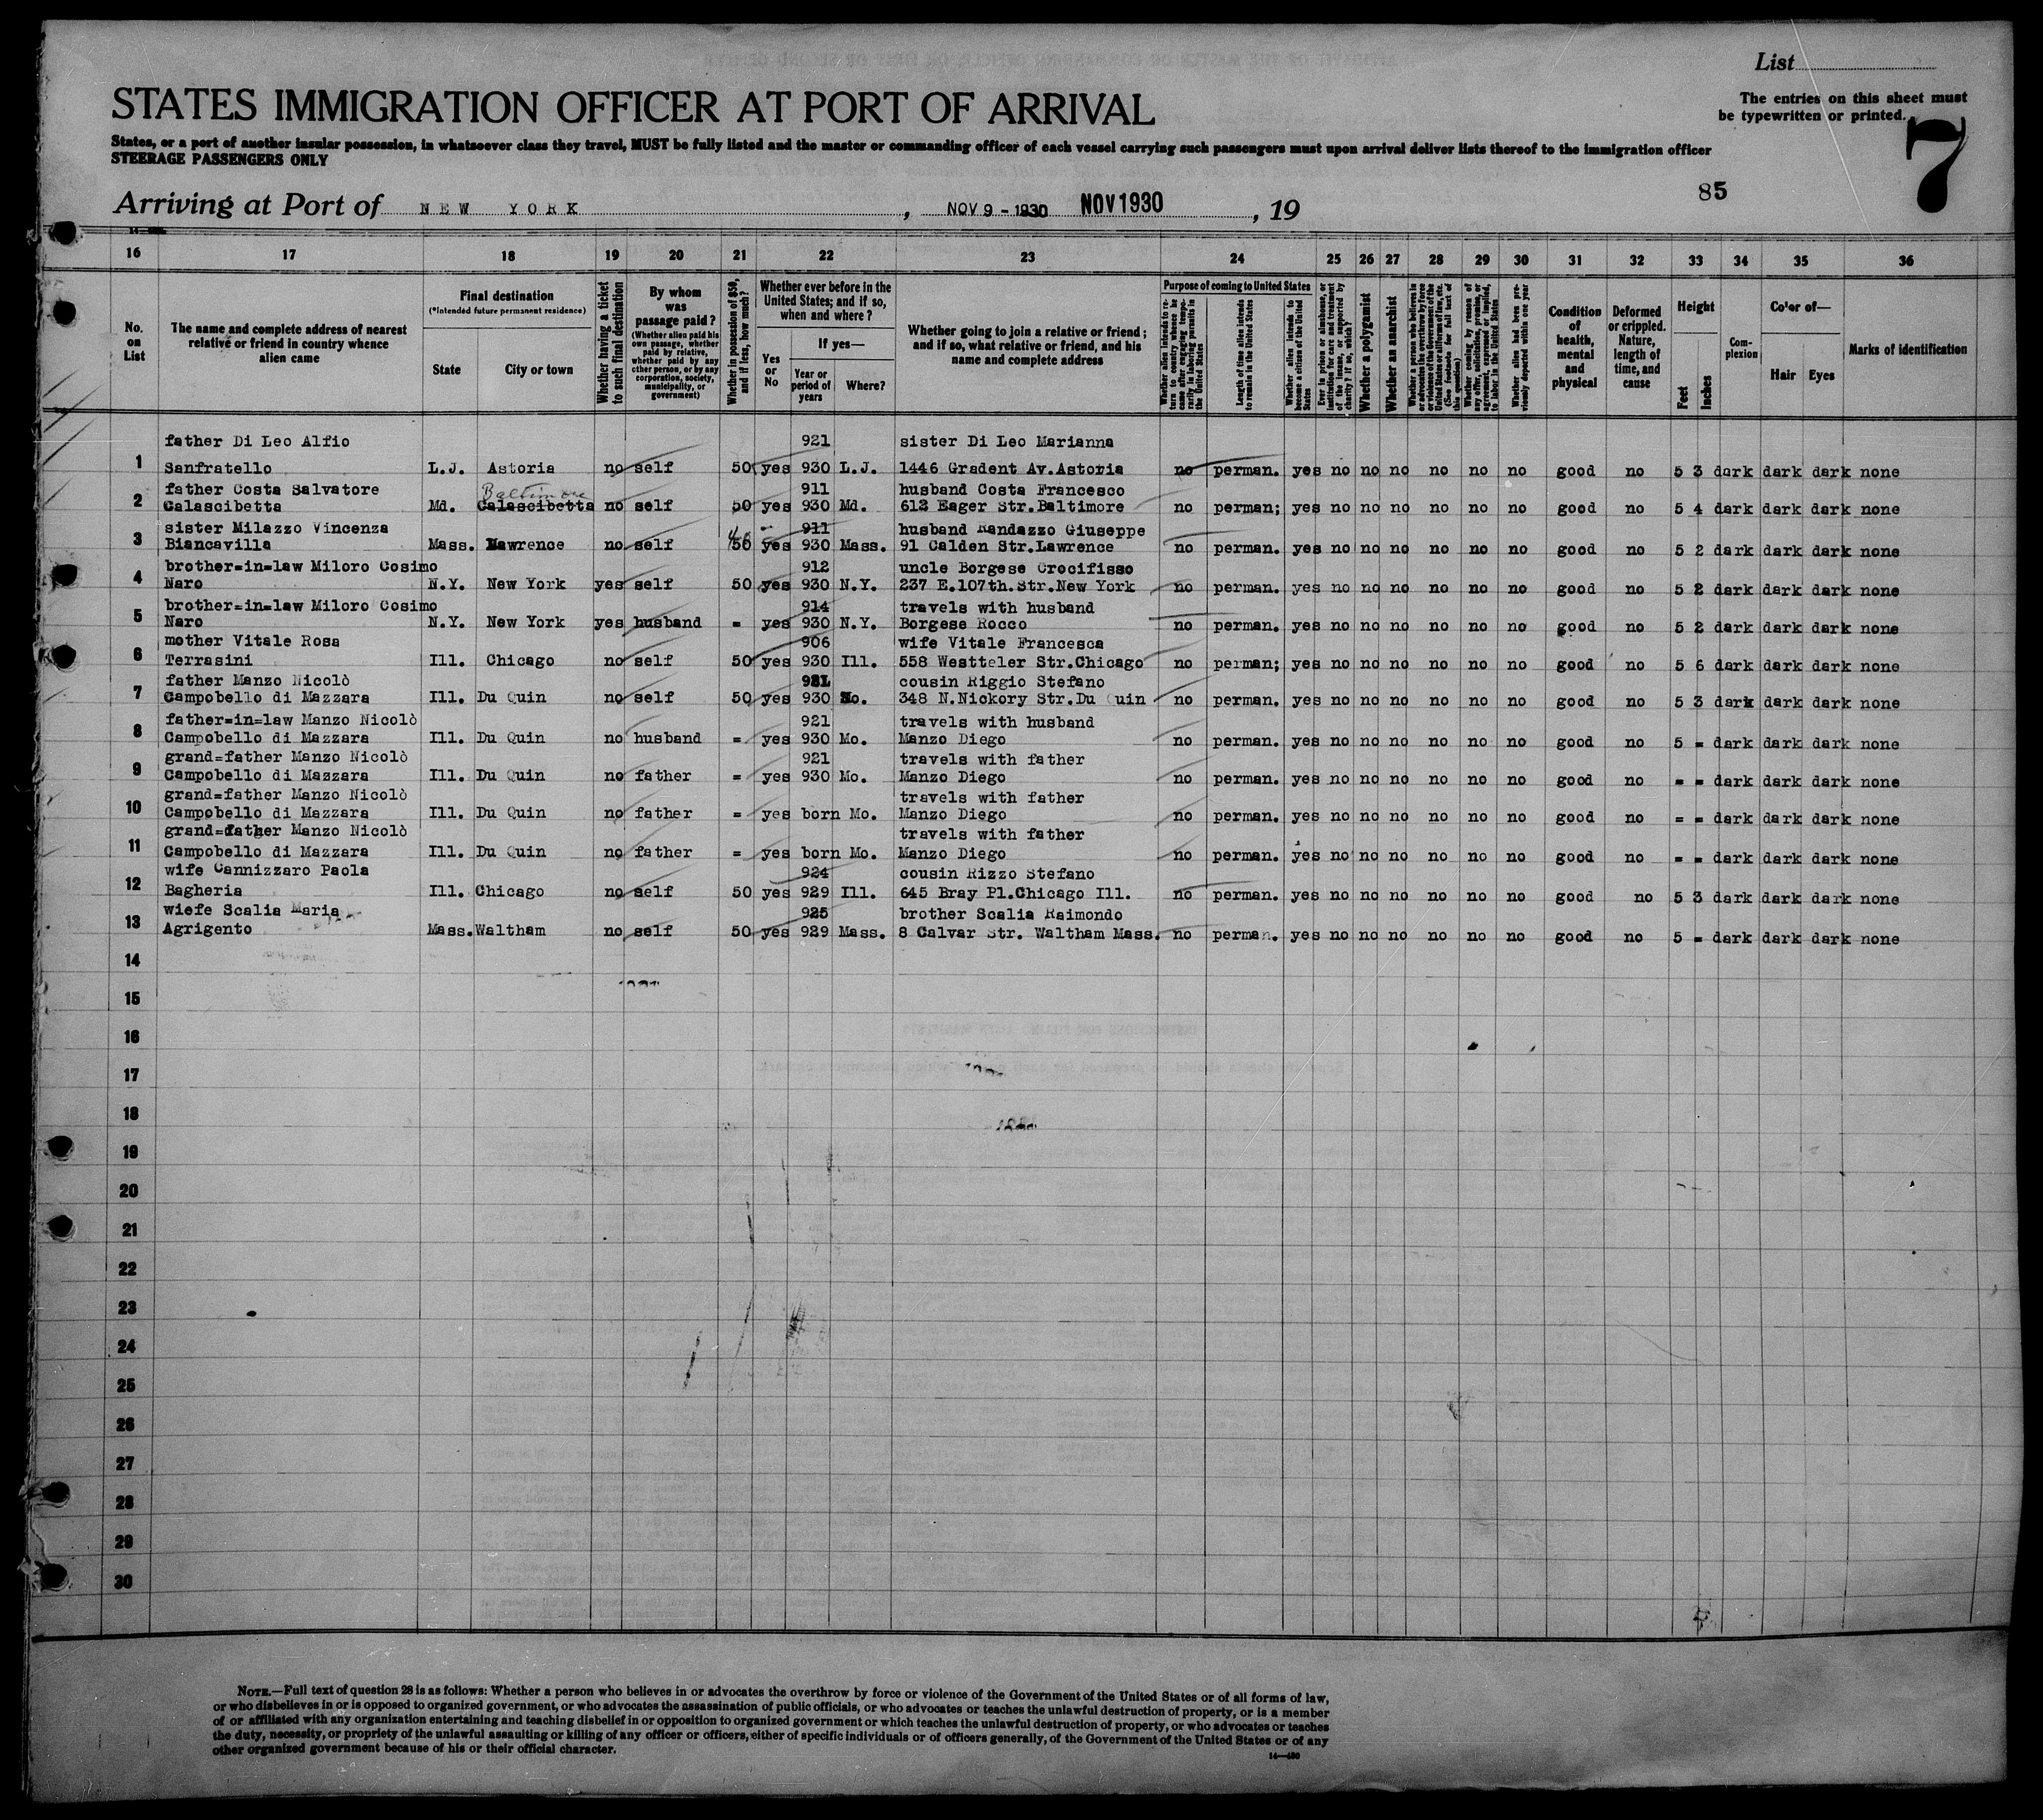 List
STATES IMMIGRATION OFFICER AT PORT OF ARRIVAL
The entries on this sheet must
be typewritten or printed.
7
States, or a port of another insular possession, in whatsoever class they travel, MUST be fully listed and the master or commanding officer of each vessel carrying such passengers must upon arrival deliver lists thereof to the immigration officer
STEERAGE PASSENGERS ONLY
85
Arriving at Port of NEW YORK, NOV 9 - 1930 NOV 1930, 19
16 17 18 19 20 21 22 23 24 25 26 27 28 29 30 31 32 33 34 35 36
No. on List
The name and complete address of nearest relative or friend in country whence alien came
Final destination
(*Intended future permanent residence)
State
City or town
Whether having a ticket to such final destination
By whom was passage paid?
(Whether alien paid his own passage, whether paid by relative, whether paid by any other person, or by any corporation, society, municipality, or government)
Whether in possession of $50, and if less, how much?
Whether ever before in the United States; and if so, when and where?
Yes or No
If yes—
Year or period of years
Where?
Whether going to join a relative or friend; and if so, what relative or friend, and his name and complete address
Purpose of coming to United States
Whether alien intends to return to country whence he came after engaging temporarily in laboring pursuits in the United States
Length of time alien intends to remain in the United States
Whether alien intends to become a citizen of the United States
Ever in prison or almshouse, or institution for care and treatment of the insane, or supported by charity? If so, which?
Whether a polygamist
Whether an anarchist
Whether a person who believes in or advocates the overthrow by force or violence of the Government of the United States or all forms of law, etc. (See footnote for full text of this question)
Whether coming by reason of any offer, solicitation, promise, or agreement, expressed or implied, to labor in the United States
Whether alien had been previously deported within one year
Condition of health, mental and physical
Deformed or crippled. Nature, length of time, and cause
Height
Feet
Inches
Complexion
Color of—
Hair Eyes
Marks of identification
father Di Leo Alfio 921 sister Di Leo Marianna
1 Sanfratello L.J. Astoria no self 50 yes 930 L.J. 1446 Gradent Av.Astoria no perman. yes no no no no no no good no 5 3 dark dark dark none
father Costa Salvatore Baltimore 911 husband Costa Francesco
2 Calascibetta Md. Calascibetta no self 50 yes 930 Md. 612 Eager Str.Baltimore no perman; yes no no no no no no good no 5 4 dark dark dark none
sister Milazzo Vincenza 911 husband Randazzo Giuseppe
3 Biancavilla Mass. Lawrence no self 50 yes 930 Mass. 91 Calden Str.Lawrence no perman. yes no no no no no no good no 5 2 dark dark dark none
brother=in=law Miloro Cosimo 912 uncle Borgese Crocifisso
4 Naro N.Y. New York yes self 50 yes 930 N.Y. 237 E.107th.Str.New York no perman. yes no no no no no no good no 5 2 dark dark dark none
brother=in=law Miloro Cosimo 914 travels with husband
5 Naro N.Y. New York yes husband = yes 930 N.Y. Borgese Rocco no perman. yes no no no no no no good no 5 2 dark dark dark none
mother Vitale Rosa 906 wife Vitale Francesca
6 Terrasini Ill. Chicago no self 50 yes 930 Ill. 558 Westteler Str.Chicago no perman; yes no no no no no no good no 5 6 dark dark dark none
father Manzo Nicolò 921 cousin Riggio Stefano
7 Campobello di Mazzara Ill. Du Quin no self 50 yes 930 Mo. 348 N.Nickory Str.Du Quin no perman. yes no no no no no no good no 5 3 dark dark dark none
father=in=law Manzo Nicolò 921 travels with husband
8 Campobello di Mazzara Ill. Du Quin no husband = yes 930 Mo. Manzo Diego no perman. yes no no no no no no good no 5 = dark dark dark none
grand=father Manzo Nicolò 921 travels with father
9 Campobello di Mazzara Ill. Du Quin no father = yes 930 Mo. Manzo Diego no perman. yes no no no no no no good no = = dark dark dark none
grand=father Manzo Nicolò travels with father
10 Campobello di Mazzara Ill. Du Quin no father = yes born Mo. Manzo Diego no perman. yes no no no no no no good no = = dark dark dark none
grand=father Manzo Nicolò travels with father
11 Campobello di Mazzara Ill. Du Quin no father = yes born Mo. Manzo Diego no perman. yes no no no no no no good no = = dark dark dark none
wife Cannizzaro Paola 924 cousin Rizzo Stefano
12 Bagheria Ill. Chicago no self 50 yes 929 Ill. 645 Bray Pl.Chicago Ill. no perman. yes no no no no no no good no 5 3 dark dark dark none
wiefe Scalia Maria 925 brother Scalia Raimondo
13 Agrigento Mass. Waltham no self 50 yes 929 Mass. 8 Calvar Str. Waltham Mass. no perman. yes no no no no no no good no 5 = dark dark dark none
14
15
16
17
18
19
20
21
22
23
24
25
26
27
28
29
30
NOTE.—Full text of question 28 is as follows: Whether a person who believes in or advocates the overthrow by force or violence of the Government of the United States or of all forms of law,
or who disbelieves in or is opposed to organized government, or who advocates the assassination of public officials, or who advocates or teaches the unlawful destruction of property, or is a member
of or affiliated with any organization entertaining and teaching disbelief in or opposition to organized government or which teaches the unlawful destruction of property, or who advocates or teaches
the duty, necessity, or propriety of the unlawful assaulting or killing of any officer or officers, either of specific individuals or of officers generally, of the Government of the United States or of any
other organized government because of his or their official character.
14—430